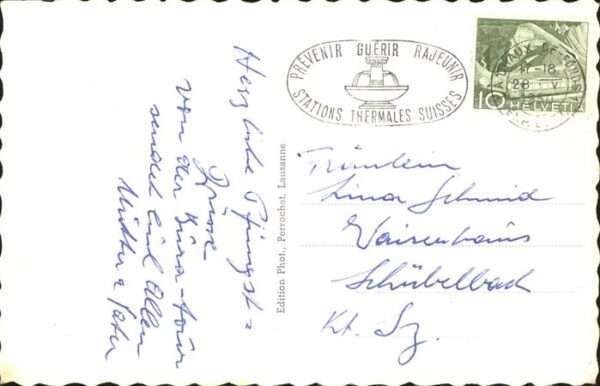 PRÉVENIR GUÉRIR RAJEUNIR
STATIONS THERMALES SUISSES
LA CHAUX-DE-FONDS
-18
28 V
10 HELVETIA
Herzliche Pfingst=
Grüsse
von der Jura-tour
sendet Euch Allen
Mutter & Vater
Edition Phot., Perrochet, Lausanne
Fräulein
Lina Schmid
Waisenhaus
Schübelbach
Kt. Sz.